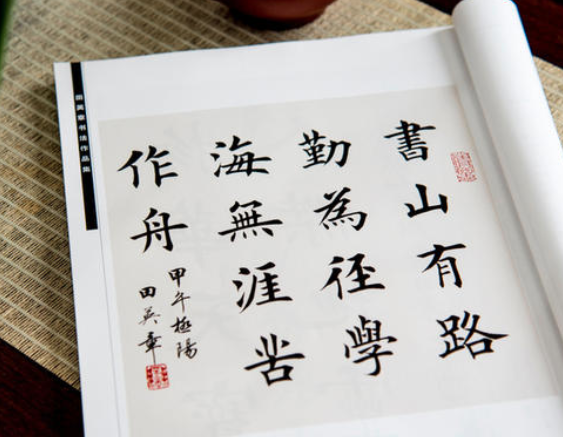 書山有路
勤為径學
海無涯苦
作舟
甲午極陽
田英章
田英章书法作品集